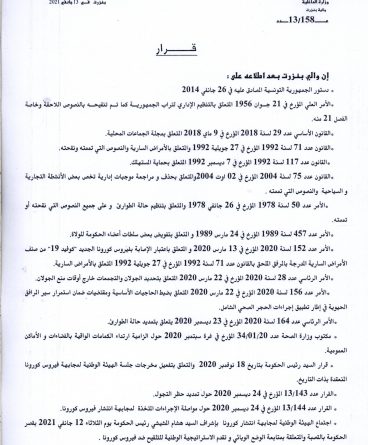 وزارة الداخلية
ولاية بنزرت
بنزرت في 13 جانفي 2021
عـــ13/158ـــدد
قـــرار
إن والي بنزرت بعد اطلاعه على :
- دستور الجمهورية التونسية المصادق عليه في 26 جانفي 2014
-الأمر العلي المؤرخ في 21 جوان 1956 المتعلق بالتنظيم الإداري لتراب الجمهورية كما تم تنقيحه بالنصوص اللاحقة وخاصة
الفصل 21 منه.
-القانون الأساسي عدد 29 لسنة 2018 المؤرخ في 9 ماي 2018 المتعلق بمجلة الجماعات المحلية.
-القانون عدد 71 لسنة 1992 المؤرخ في 27 جويلية 1992 والمتعلق بالأمراض السارية والنصوص التي تممته ونقحته.
-القانون عدد 117 لسنة 1992 المؤرخ في 7 ديسمبر 1992 المتعلق بحماية المستهلك.
-القانون عدد 75 لسنة 2004 المؤرخ في 02 اوت 2004والمتعلق بحذف و مراجعة موجبات إدارية تخص بعض الأنشطة التجارية
و السياحية والنصوص التي تممته .
-الأمر عدد 50 لسنة 1978 المؤرخ في 26 جانفي 1978 والمتعلق بتنظيم حالة الطوارئ و على جميع النصوص التي نقحته أو
تممته.
-الأمر عدد 457 لسنة 1989 المؤرخ في 24 مارس 1989 و المتعلق بتفويض بعض سلطات أعضاء الحكومة للولاة.
-الأمر عدد 152 لسنة 2020 المؤرخ في 13 مارس 2020 و المتعلق باعتبار الإصابة بفيروس كورونا الجديد "كوفيد 19" من صنف
الأمراض السارية المدرجة بالمرفق الملحق بالقانون عدد 71 لسنة 1992 المؤرخ في 27 جويلية 1992 والمتعلق بالأمراض السارية.
-الأمر الرئاسي عدد 28 لسنة 2020 المؤرخ في 22 مارس 2020 المتعلق بتحديد الجولان والتجمعات خارج أوقات منع الجولان.
-الأمر عدد 156 لسنة 2020 المؤرخ في 22 مارس 2020 المتعلق بضبط الحاجيات الأساسية ومقتضيات ضمان استمرار سير المرافق
الحيوية في إطار تطبيق إجراءات الحجر الصحي الشامل.
-الأمر الرئاسي عدد 164 لسنة 2020 المؤرخ في 23 ديسمبر 2020 يتعلق بتمديد حالة الطوارئ.
- مكتوب وزارة الصحة عدد 34/01/20 المؤرخ في غرة سبتمبر 2020 حول الزامية ارتداء الكمامات الواقية بالفضاءات و الأماكن
العمومية.
- قرار السيد رئيس الحكومة بتاريخ 18 نوفمبر 2020 والمتعلق بتفعيل مخرجات جلسة الهيئة الوطنية لمجابهة فيروس كورونا
المنعقدة بذات التاريخ.
-القرار عدد 13/143 المؤرخ في 24 ديسمبر 2020 حول تمديد حظر التجول.
-القرار عدد 13/144 المؤرخ في 24 ديسمبر 2020 حول مواصلة الإجراءات المتخذة لمجابهة انتشار فيروس كورونا.
- اجتماع الهيئة الوطنية لمجابهة انتشار كورونا بإشراف السيد هشام المشيشي رئيس الحكومة يوم الثلاثاء 12 جانفي 2021 بقصر
الحكومة بالقصبة والمتعلقة بمتابعة الوضع الوبائي و تقدم الاستراتيجية الوطنية للتلقيح ضد فيروس كورونا .